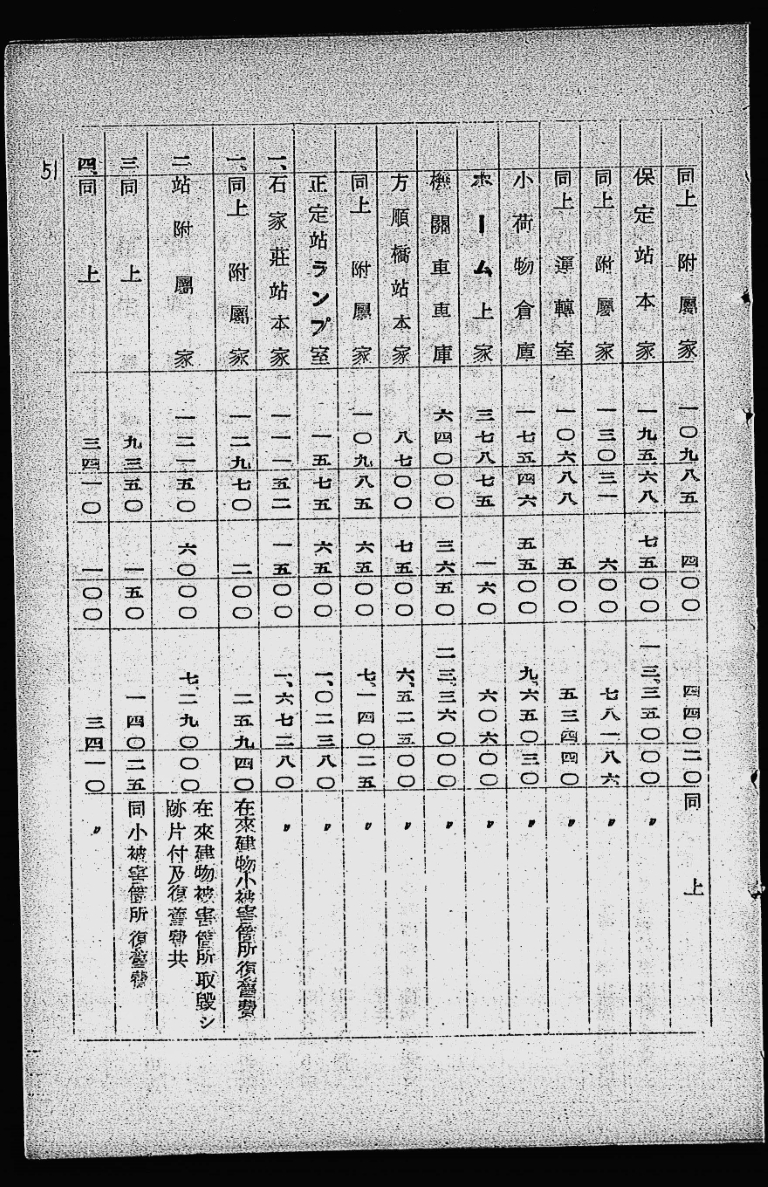 同上附屬家 一〇九八五 四〇〇 四四〇二〇 同上
保定站本家 一九五六八 七五〇〇 一三、三五〇〇〇 〃
同上附屬家 一三〇三一 六〇〇 七八一八六 〃
同上運轉室 一〇六八八 五〇〇 五三四四〇 〃
小荷物倉庫 一七五四六 五五〇〇 九、六五〇三〇 〃
ホーム上家 三七八七五 一六〇 六〇六〇〇 〃
機關車車庫 六四〇〇〇 三六五〇 二三、三六〇〇〇 〃
方順橋站本家 八七〇〇 七五〇〇 六、五二五〇〇 〃
同上附屬家 一〇九八五 六五〇〇 七、一四〇二五 〃
正定站ランプ室 一五七五 六五〇〇 一、〇二三八〇 〃
一、石家莊站本家 一一一五二 一五〇〇 一、六七二八〇 〃
一、同上附屬家 一二九七〇 二〇〇 二五九四〇 在來建物小被害箇所復舊費
二站附屬家 一二一五〇 六〇〇〇 七、二九〇〇〇 在來建物被害箇所取毀シ
跡片付及復舊費共
三同上 九三五〇 一五〇 一四〇二五 同小被害箇所復舊費
四、同上 三四一〇 一〇〇 三四一〇 〃
51